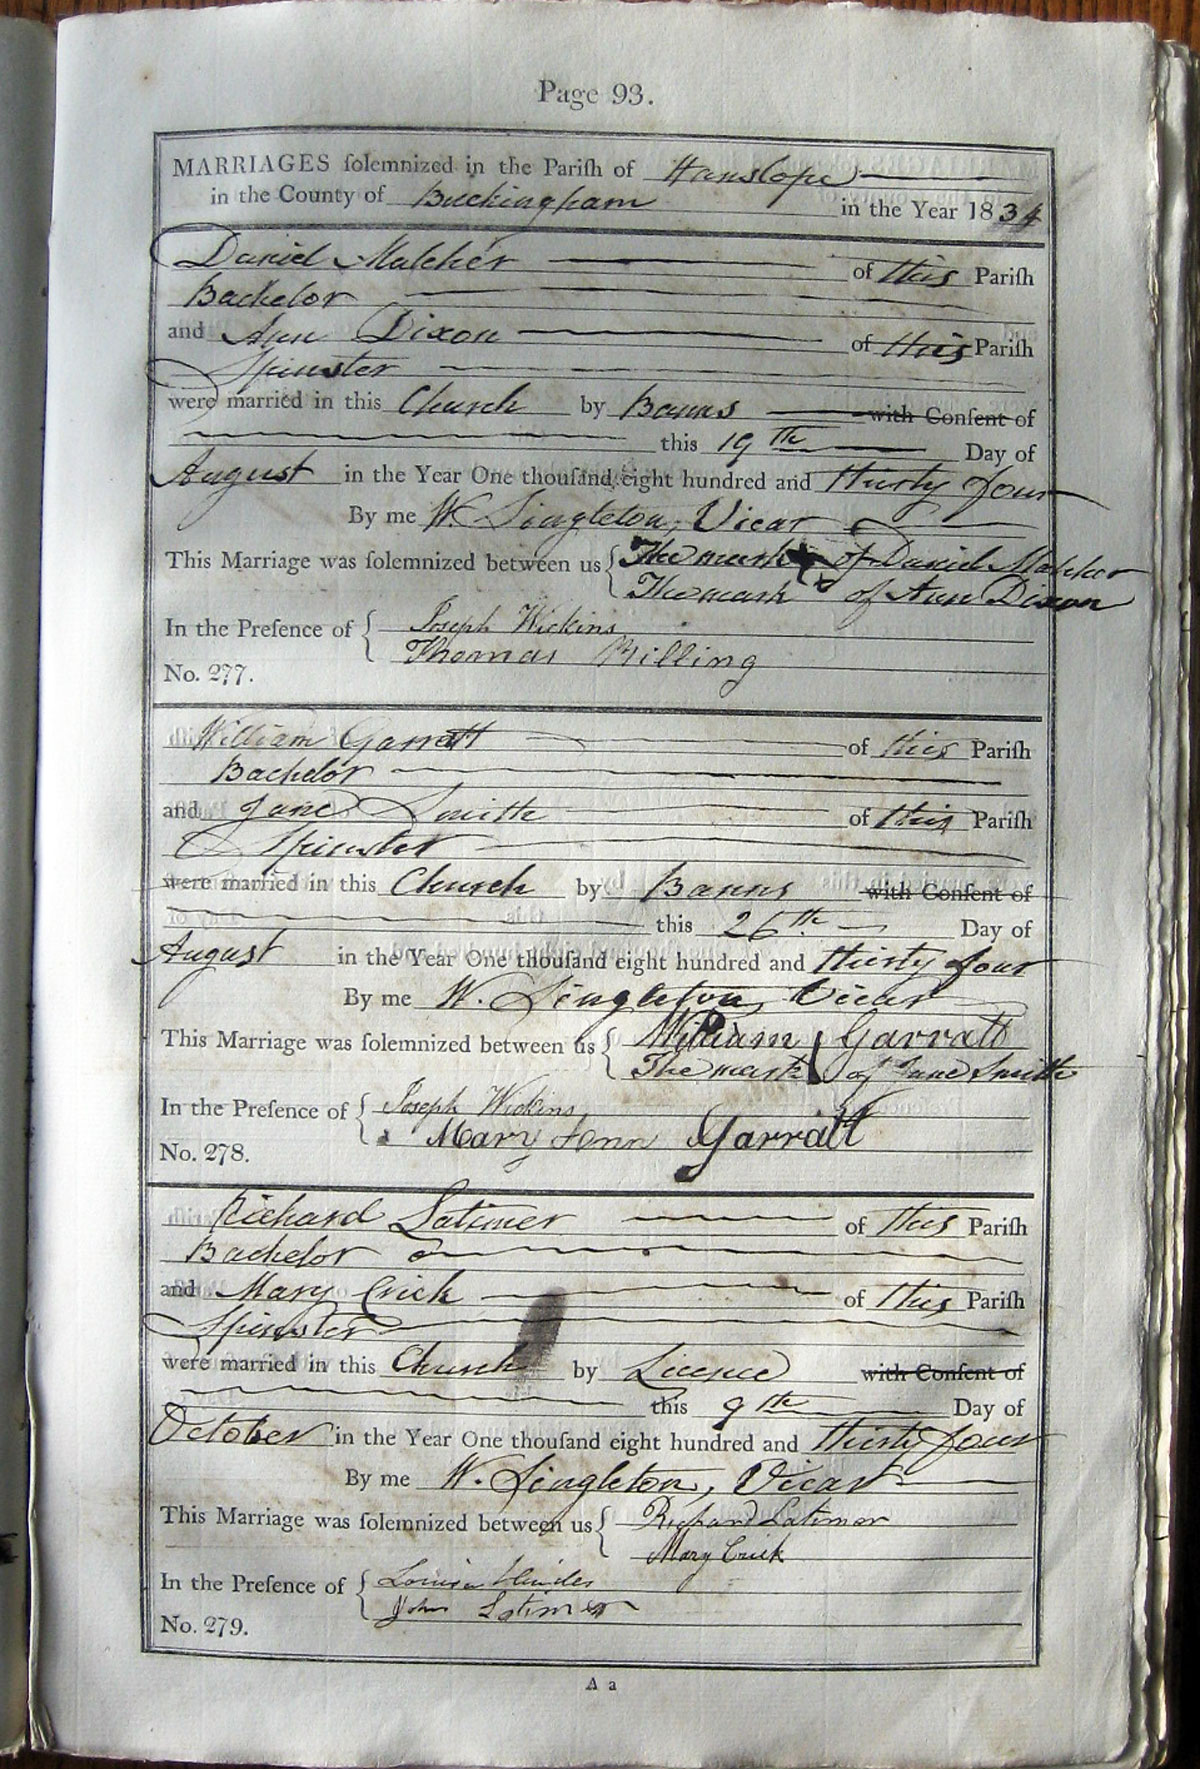 Page 93.
MARRIAGES ſolemnized in the Pariſh of Hanslope
in the County of Buckingham in the Year 1834
Daniel Malcher of this Pariſh
Bachelor
and Ann Dixon of this Pariſh
Spinster
were married in this Church by Banns with Conſent of
this 19th Day of
August in the Year One thouſand eight hundred and thirty four
By me W. Singleton, Vicar
This Marriage was ſolemnized between us { The mark of Daniel Malcher
The mark of Ann Dixon
In the Preſence of { Joseph Wickins
Thomas Billing
No. 277.
William Garratt of this Pariſh
Bachelor
and Jane Smith of this Pariſh
Spinster
were married in this Church by Banns with Conſent of
this 26th Day of
August in the Year One thouſand eight hundred and thirty four
By me W. Singleton, Vicar
This Marriage was ſolemnized between us { William Garratt
The mark of Jane Smith
In the Preſence of { Joseph Wickins
Mary Ann Garratt
No. 278.
Richard Latimer of this Pariſh
Bachelor
and Mary Crick of this Pariſh
Spinster
were married in this Church by Licence with Conſent of
this 9th Day of
October in the Year One thouſand eight hundred and thirty four
By me W. Singleton, Vicar
This Marriage was ſolemnized between us { Richard Latimer
Mary Crick
In the Preſence of { Louisa
John Latimer
No. 279.
A a